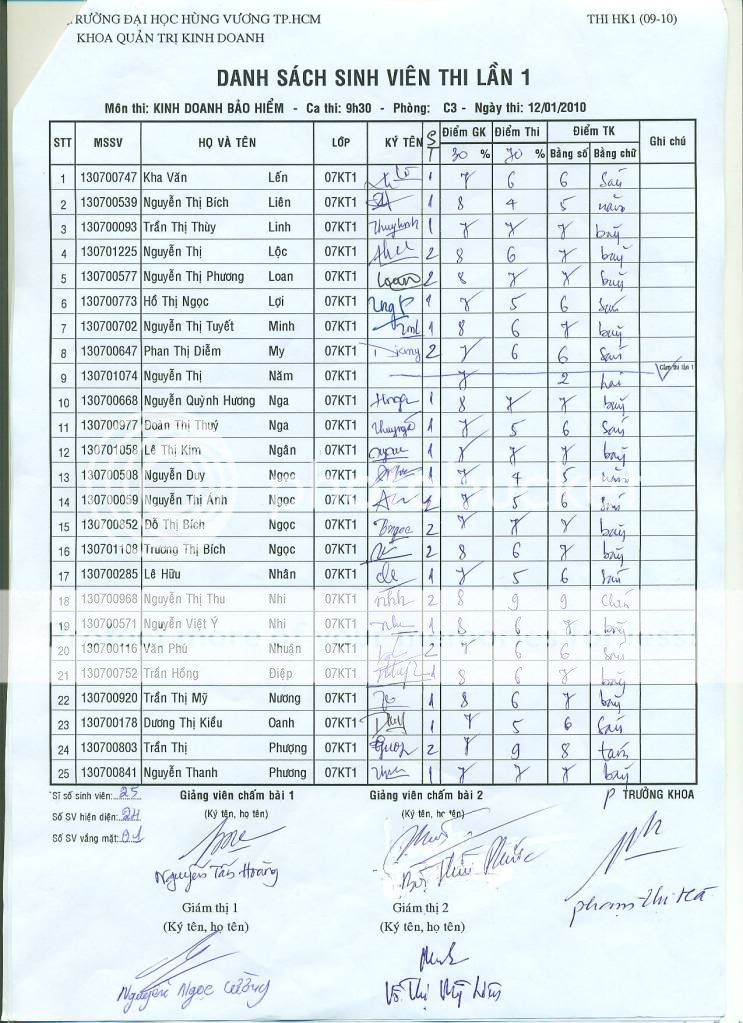 TRƯỜNG ĐẠI HỌC HÙNG VƯƠNG TP.HCM THI HK1 (09-10)
KHOA QUẢN TRỊ KINH DOANH
DANH SÁCH SINH VIÊN THI LẦN 1
Môn thi: KINH DOANH BẢO HIỂM - Ca thi: 9h30 - Phòng: C3 - Ngày thi: 12/01/2010
STT MSSV HỌ VÀ TÊN LỚP KÝ TÊN ST Điểm GK Điểm Thi Điểm TK Ghi chú
30 % 70 % Bằng số Bằng chữ
1 130700747 Kha Văn Lến 07KT1 1 7 6 6 Sáu
2 130700539 Nguyễn Thị Bích Liên 07KT1 1 8 4 5 năm
3 130700093 Trần Thị Thùy Linh 07KT1 1 7 7 7 bảy
4 130701225 Nguyễn Thị Lộc 07KT1 2 8 6 7 bảy
5 130700577 Nguyễn Thị Phương Loan 07KT1 Loan 2 8 7 7 bảy
6 130700773 Hồ Thị Ngọc Lợi 07KT1 1 7 5 6 Sáu
7 130700702 Nguyễn Thị Tuyết Minh 07KT1 1 8 6 7 bảy
8 130700647 Phan Thị Diễm My 07KT1 2 7 6 6 Sáu
9 130701074 Nguyễn Thị Năm 07KT1 7 2 hai Giám thi lần 1
10 130700668 Nguyễn Quỳnh Hương Nga 07KT1 1 8 7 7 bảy
11 130700977 Đoàn Thị Thuý Nga 07KT1 1 7 5 6 Sáu
12 130701058 Lê Thị Kim Ngân 07KT1 1 7 7 7 bảy
13 130700508 Nguyễn Duy Ngọc 07KT1 1 7 4 5 năm
14 130700059 Nguyễn Thị Ánh Ngọc 07KT1 7 5 6 Sáu
15 130700852 Đỗ Thị Bích Ngọc 07KT1 Bngoc 2 7 7 7 bảy
16 130701108 Trương Thị Bích Ngọc 07KT1 2 8 6 7 bảy
17 130700285 Lê Hữu Nhân 07KT1 1 7 5 6 Sáu
18 130700968 Nguyễn Thị Thu Nhi 07KT1 2 8 9 9 Chín
19 130700571 Nguyễn Việt Ý Nhi 07KT1 1 8 6 7 bảy
20 130700116 Văn Phú Nhuận 07KT1 2 7 6 6 Sáu
21 130700752 Trần Hồng Điệp 07KT1 1 8 6 7 bảy
22 130700920 Trần Thị Mỹ Nương 07KT1 1 8 6 7 bảy
23 130700178 Dương Thị Kiều Oanh 07KT1 1 7 5 6 Sáu
24 130700803 Trần Thị Phượng 07KT1 2 7 9 8 tám
25 130700841 Nguyễn Thanh Phương 07KT1 1 7 7 7 bảy
*Sĩ số sinh viên: 25 Giảng viên chấm bài 1 Giảng viên chấm bài 2 P TRƯỞNG KHOA
Số SV hiện diện: 24 (Ký tên, họ tên) (Ký tên, họ tên)
Số SV vắng mặt: 01
Nguyễn Tấn Hoàng
Giám thị 1 Giám thị 2
(Ký tên, họ tên) (Ký tên, họ tên)
Nguyễn Ngọc Cường